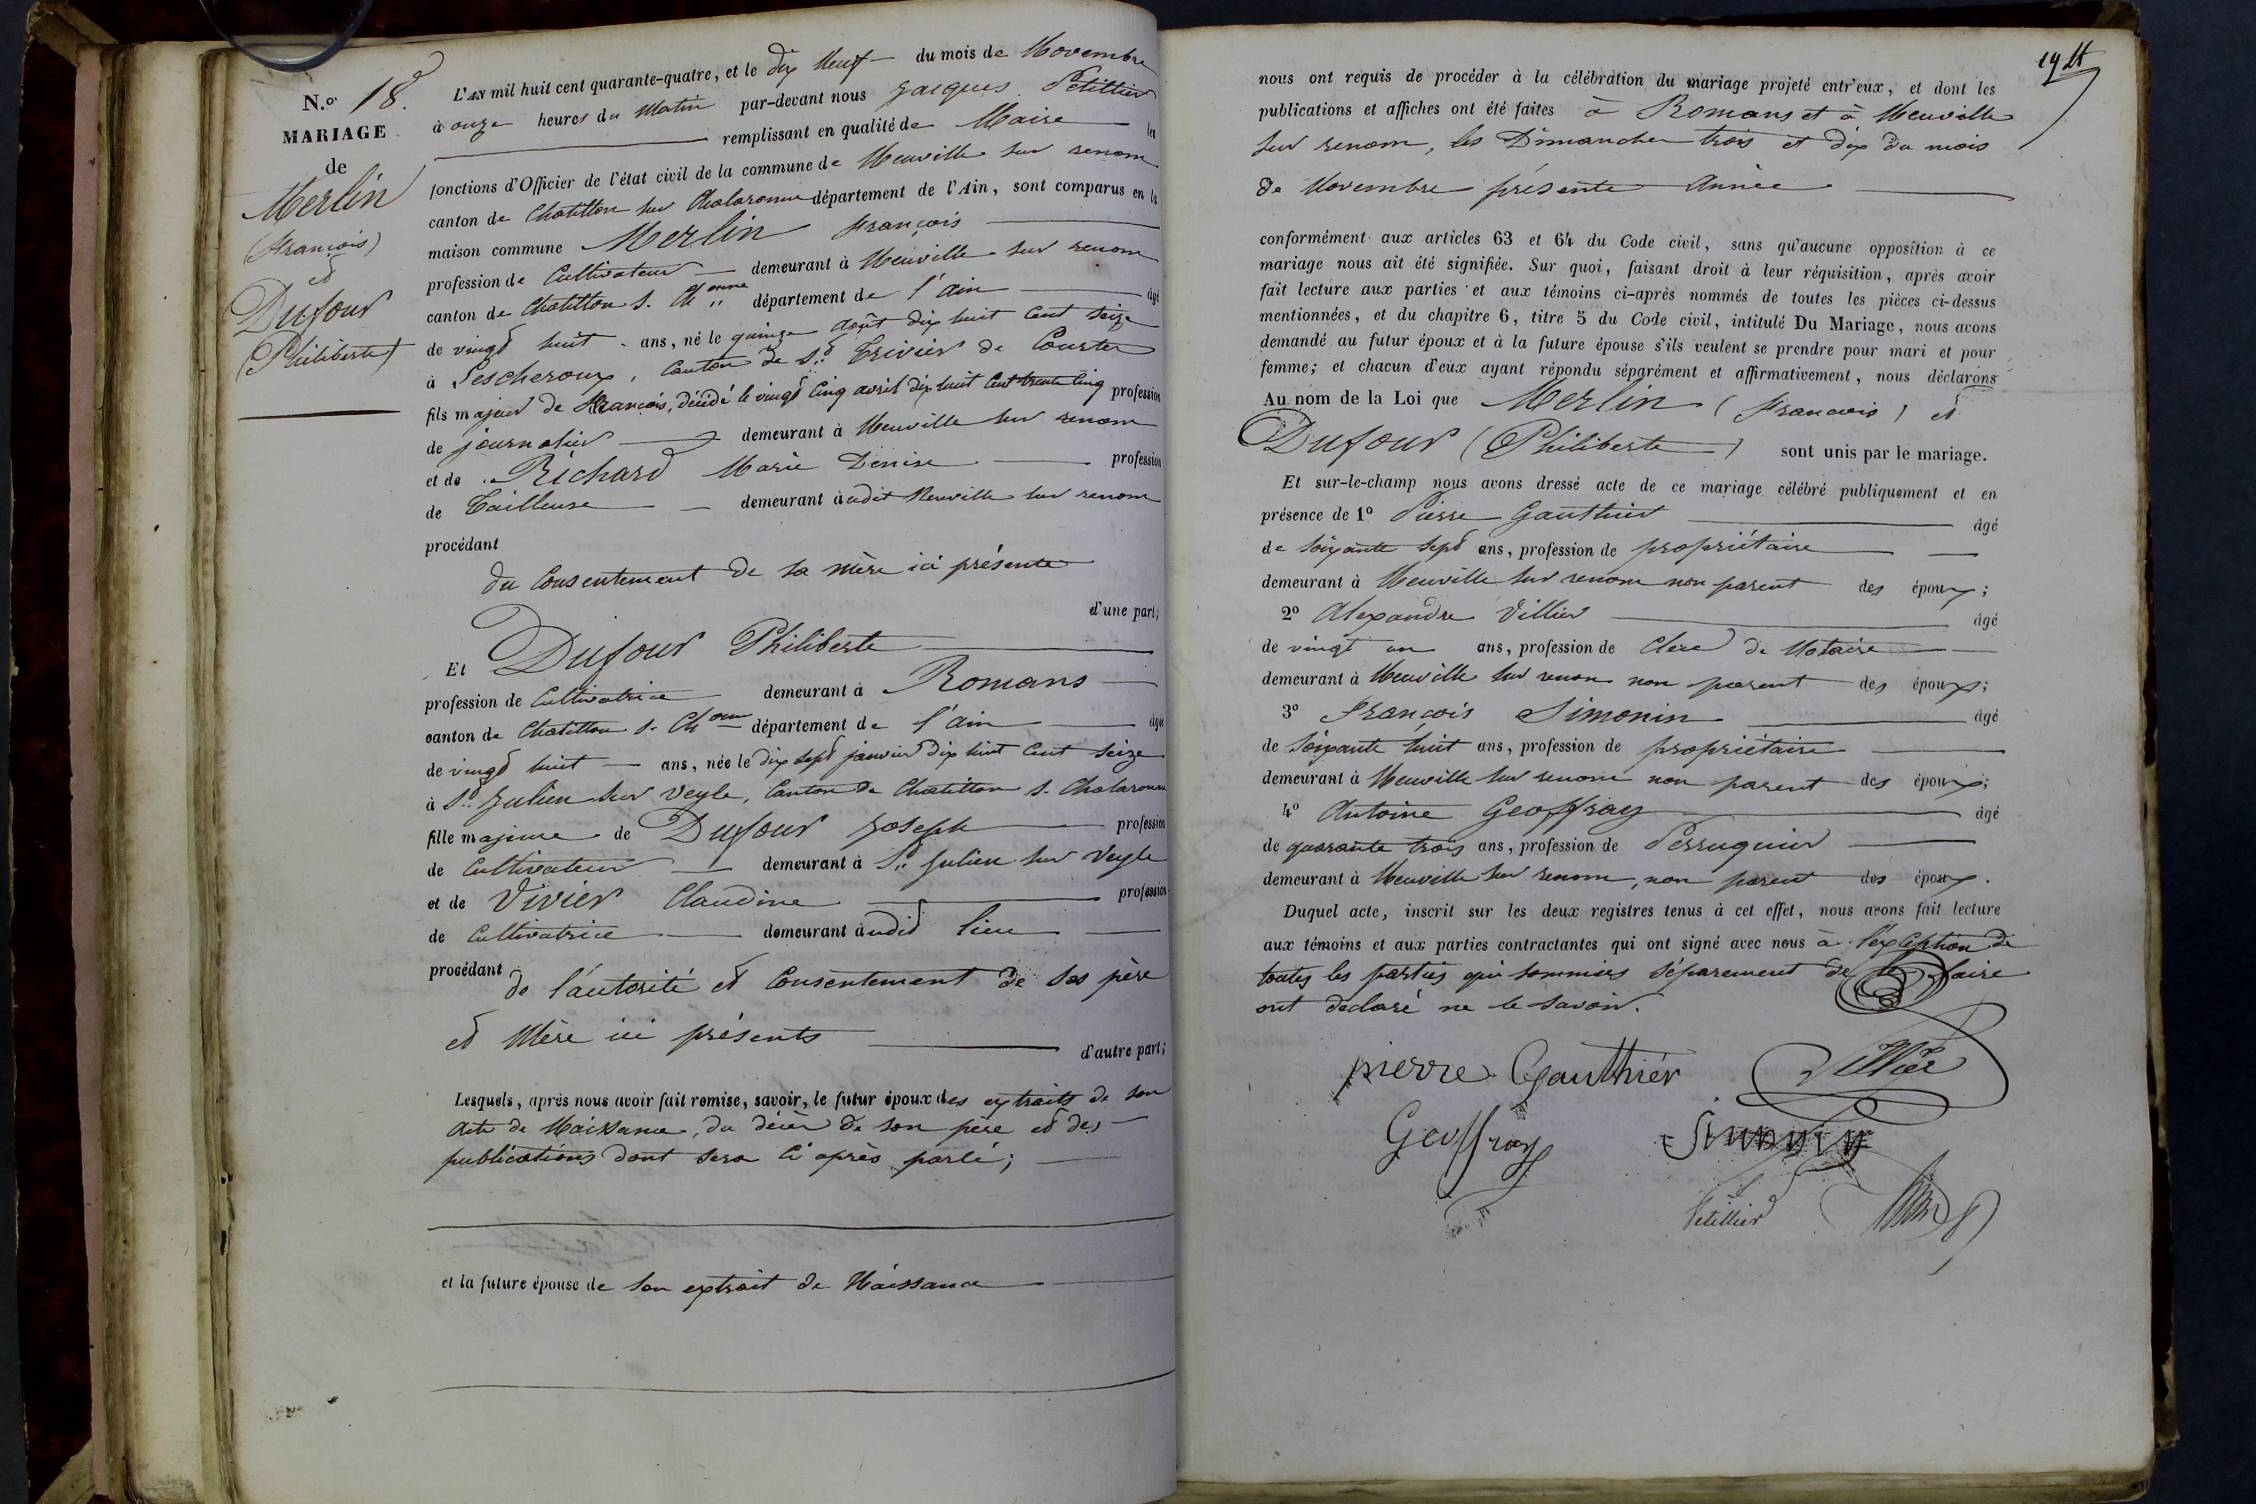 N.º 18.
MARIAGE
de
Merlin
(François)
et
Dufour
(Philiberte)
L'AN mil huit cent quarante-quatre, et le dix Neuf du mois de Novembre
à onze heures du Matin par-devant nous Jacques Petillier
remplissant en qualité de Maire les
fonctions d'Officier de l'état civil de la commune de Neuville sur renom
canton de Chatillon sur Chalaronne département de l'Ain, sont comparus en la
maison commune Merlin François
profession de Cultivateur demeurant à Neuville sur renom
canton de Chatillon s. Ch onne département de l'ain âgé
de vingt huit ans, né le quinze Août dix huit Cent seize
à Lescheroux, Canton de St. Trivier de Courtes
fils majeur de François, décédé le vingt Cinq avril dix huit Cent trente Cinq profession
de journalier demeurant à Neuville sur renom
et de Richard Marie Denise profession
de Tailleuse demeurant à udit Neuville sur renom
procédant
du Consentement de sa mère ici présente
d'une part;
Et Dufour Philiberte
profession de Cultivatrice demeurant à Romans
canton de Chatillon s. Ch onne département de l'ain âgée
de vingt huit ans, née le dix sept janvier dix huit Cent seize
à St. Julien sur Veyle, Canton de Chatillon s. Chalaronne
fille majeure de Dufour Joseph profession
de Cultivateur demeurant à St. Julien sur Veyle
et de Vivier Claudine profession
de Cultivatrice demeurant à udit lieu
procédant de l'autorité et Consentement de ses père
et Mère ici présents
d'autre part;
Lesquels, après nous avoir fait remise, savoir, le futur époux des extraits de son
Acte de Naissance, du décès de son père et des
publications dont sera Ci après parlé;
et la future épouse de son extrait de Naissance
19
nous ont requis de procéder à la célébration du mariage projeté entr'eux, et dont les
publications et affiches ont été faites à Romans et à Neuville
sur renom, les Dimanches trois et dix du mois
de Novembre présente Année
conformément aux articles 63 et 64 du Code civil, sans qu'aucune opposition à ce
mariage nous ait été signifiée. Sur quoi, faisant droit à leur réquisition, après avoir
fait lecture aux parties et aux témoins ci-après nommés de toutes les pièces ci-dessus
mentionnées, et du chapitre 6, titre 5 du Code civil, intitulé Du Mariage, nous avons
demandé au futur époux et à la future épouse s'ils veulent se prendre pour mari et pour
femme; et chacun d'eux ayant répondu séparément et affirmativement, nous déclarons
Au nom de la Loi que Merlin (François) et
Dufour (Philiberte) sont unis par le mariage.
Et sur-le-champ nous avons dressé acte de ce mariage célébré publiquement et en
présence de 1º Pierre Gauthier âgé
de soixante sept ans, profession de propriétaire
demeurant à Neuville sur renom non parent des époux;
2º Alexandre Villier âgé
de vingt un ans, profession de Clerc de Notaire
demeurant à Neuville sur renom non parent des époux;
3º François Simonin âgé
de soixante huit ans, profession de propriétaire
demeurant à Neuville sur renom non parent des époux;
4º Antoine Geoffray âgé
de quarante trois ans, profession de Perruquier
demeurant à Neuville sur renom, non parent des époux.
Duquel acte, inscrit sur les deux registres tenus à cet effet, nous avons fait lecture
aux témoins et aux parties contractantes qui ont signé avec nous à l'exception de
toutes les parties qui sommées séparement de le faire
ont declaré ne le savoir.
pierre Gauthier Villier
Geoffray Simonin
Petillier